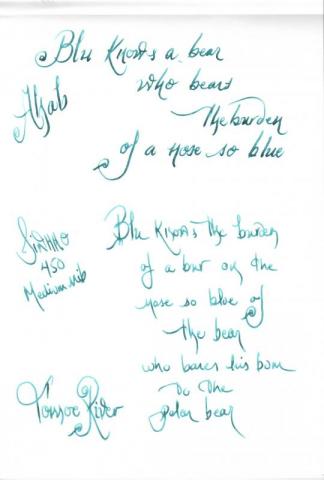 Blu Knows a bear
who bears
Ahab
the burden
of a nose so blue
Blu Knows the burden
of a bur on the
nose so blue of
the bear
who bares his bum
to the
polar bear
450
Medium nib
Tomoe River